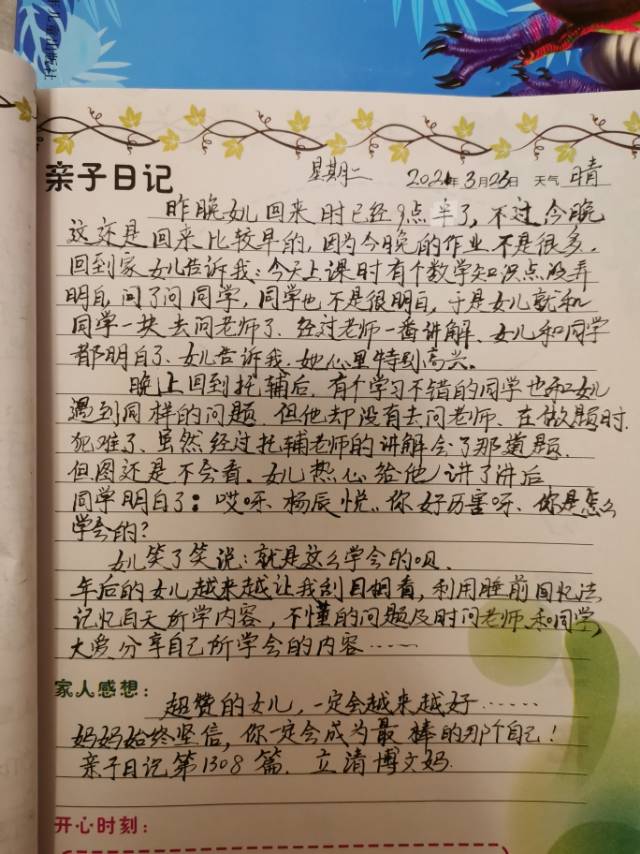 亲子日记 星期二 2021年3月23日 天气 晴
昨晚女儿回来时已经9点半了，不过今晚
这还是回来比较早的，因为今晚的作业不是很多，
回到家女儿告诉我：今天上课时有个数学知识点没弄
明白，问了问同学，同学也不是很明白，于是女儿就和
同学一块去问老师了、经过老师一番讲解、女儿和同学
都明白了、女儿告诉我、她心里特别高兴。
晚上回到托辅后，有个学习不错的同学也和女儿
遇到同样的问题、但他却没有去问老师、在做题时，
犯难了、虽然经过托辅老师的讲解会了那道题、
但图还是不会看、女儿热心给他讲了讲后
同学明白了：哎呀、杨辰悦，你好厉害呀、你是怎么
学会的？
女儿笑了笑说：就是这么学会的呗、
年后的女儿越来越让我刮目相看，利用睡前回忆法
记忆白天所学内容，不懂的问题及时问老师和同学，
大爱分享自己所学会的内容……
家人感想：
超赞的女儿，一定会越来越好……
妈妈始终坚信，你一定会成为最棒的那个自己！
亲子日记第1308篇、立清博文妈
开心时刻：